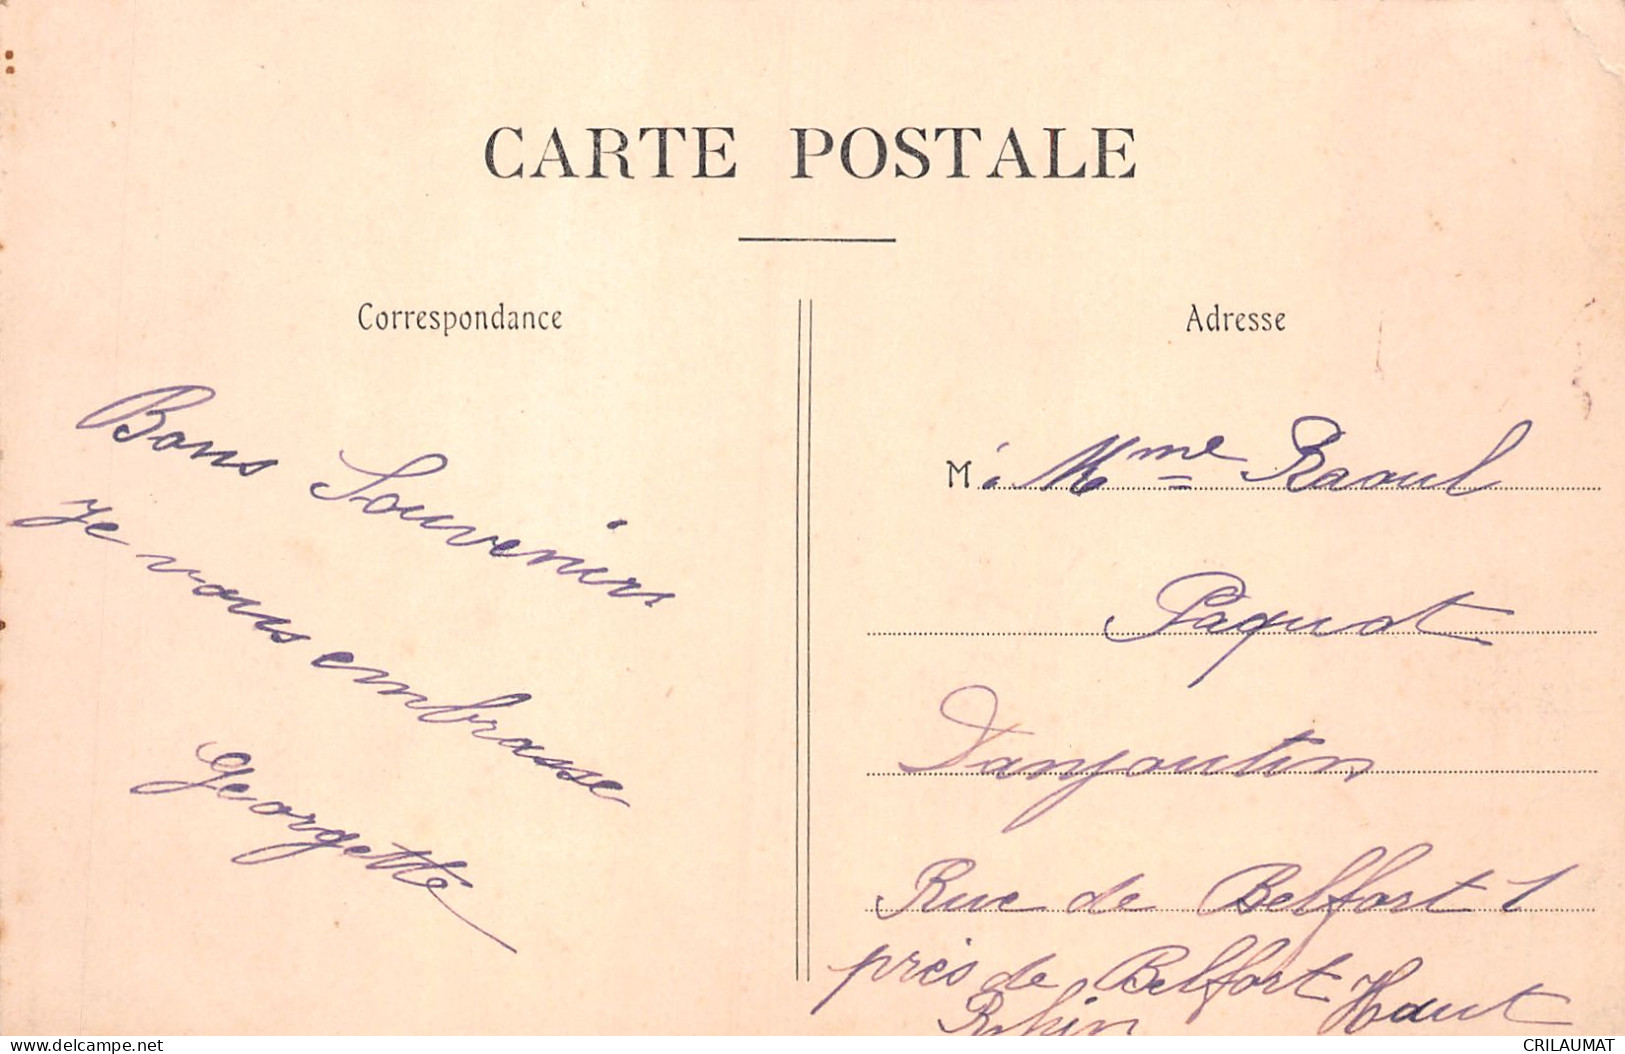 CARTE POSTALE
Correspondance
Bons Souvenirs
je vous embrasse
Georgette
Adresse
M. Mme Raoul
Paquot
Danjoutin
Rue de Belfort 1
près de Belfort Haut
Rhin
delcampe.net
CRILAUMAT